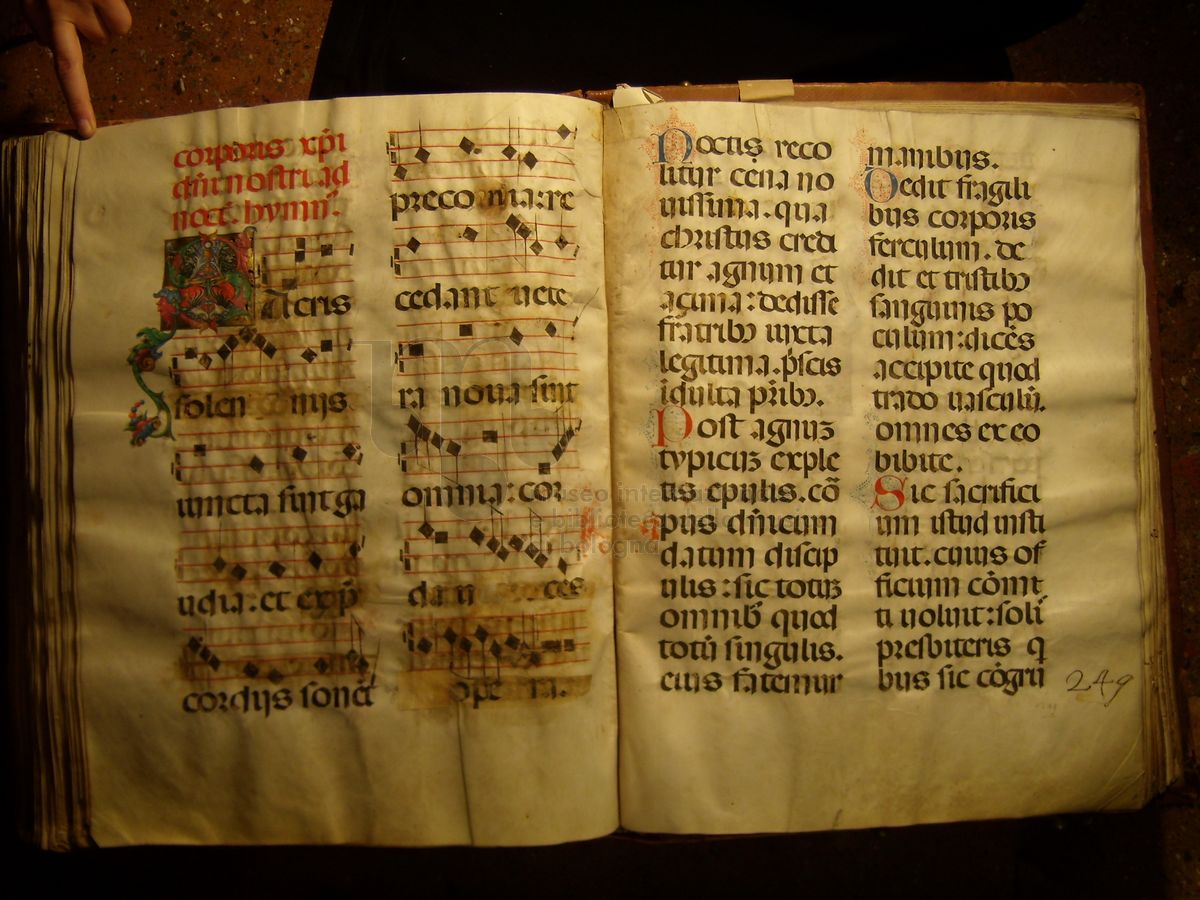 corporis xp̄i
dn̄i nostri ad
noct̄. hymn᷒.
Acris
solen nijs
iuncta sint ga
udia: et ex p̄
cordijs sonēt
preco nia: re
cedant uete
ra noua sint
omnia: cor
da u ces
ope ra.
Noctis reco
litur cena no
uissima. qua
christus credi
tur agnum et
açima: dedisse
fratribꝫ iuxta
legitima. p̄scis
īdulta pr̄ibꝫ.
Post agnuꝫ
typicuꝫ exple
tis epulis. cō
pus dn̄icum
datum discip
ulis: sic totuꝫ
omnibꝫ quod
totū singulis.
eius fatemur
manibus.
Dedit fragili
bus corporis
ferculum. de
dit et tristibꝫ
sanguinis po
culum: dicēs
accipite quod
trado uasculū.
omnes ex eo
bibite.
Sic sacrifici
um istud insti
tuit. cuius of
ficium cōmit
ti uoluit: soli
presbiteris q
bus sic cōgru
249
museo inter
e biblioteca
bologna